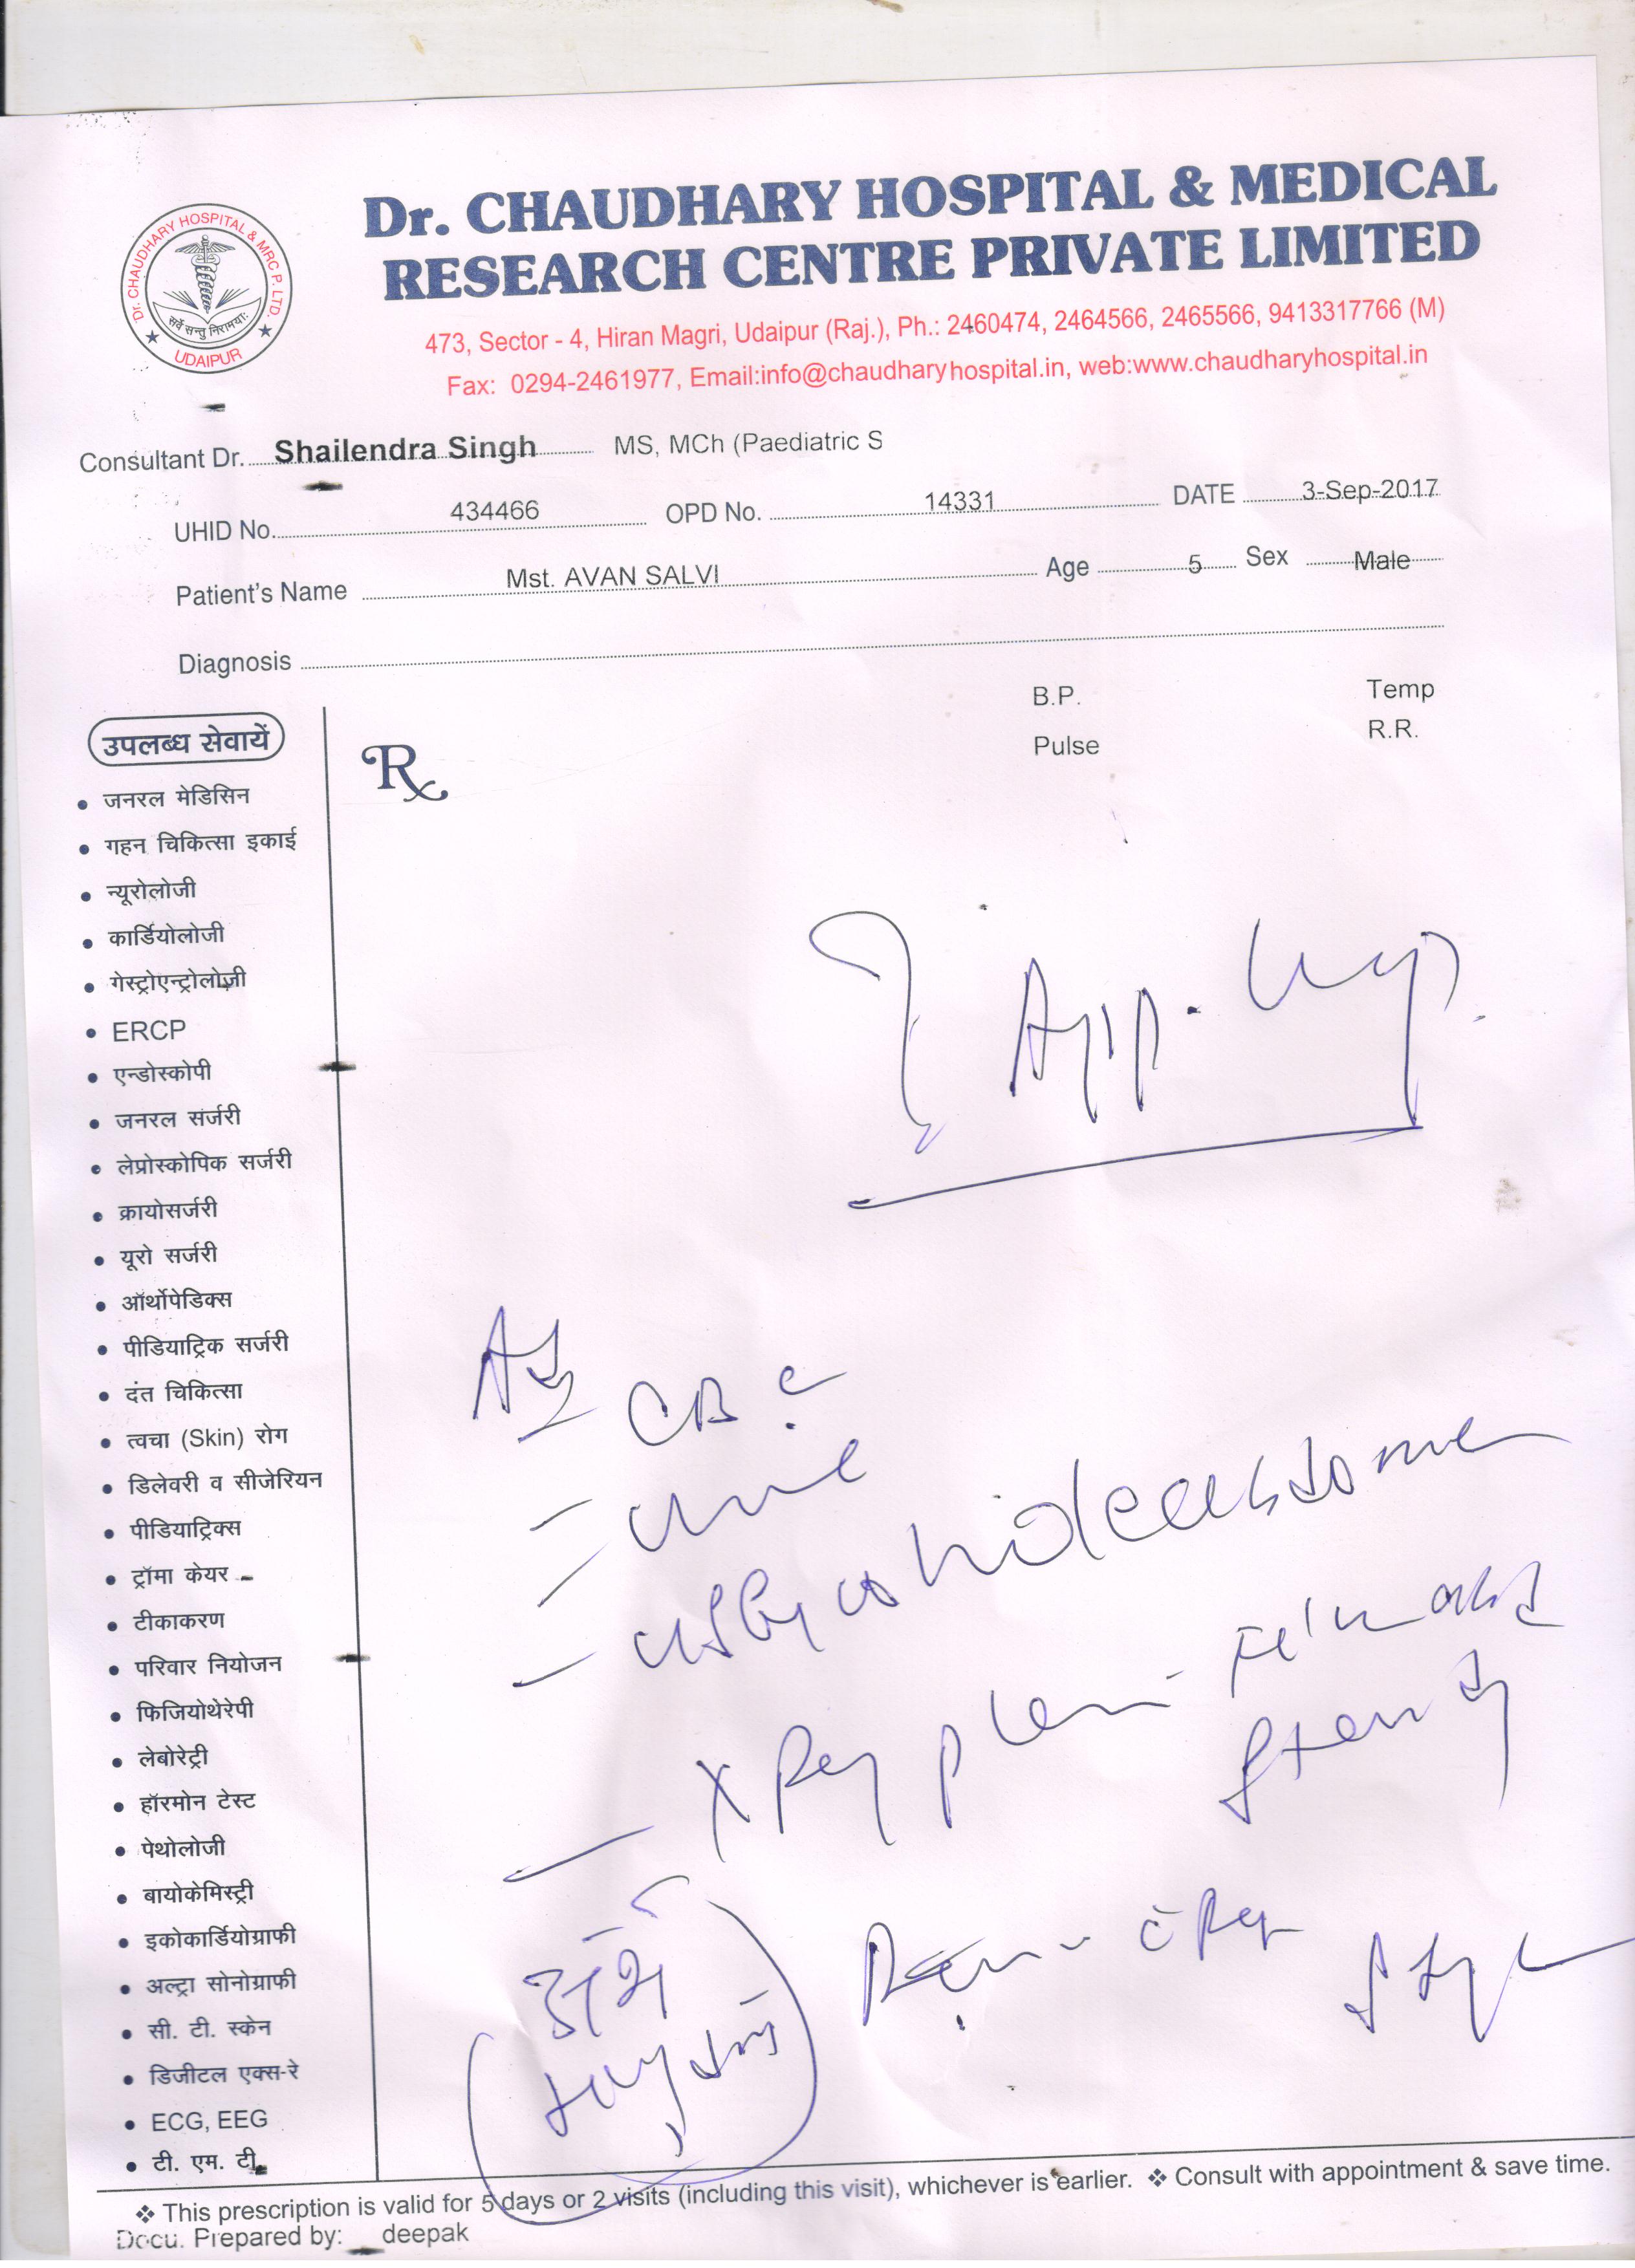 Dr. CHAUDHARY HOSPITAL & MRC P. LTD.
सर्वे सन्तु निरामयाः
UDAIPUR
Dr. CHAUDHARY HOSPITAL & MEDICAL
RESEARCH CENTRE PRIVATE LIMITED
473, Sector - 4, Hiran Magri, Udaipur (Raj.), Ph.: 2460474, 2464566, 2465566, 9413317766 (M)
Fax: 0294-2461977, Email:info@chaudharyhospital.in, web:www.chaudharyhospital.in
Consultant Dr. Shailendra Singh MS, MCh (Paediatric S
UHID No. 434466 OPD No. 14331 DATE 3-Sep-2017
Patient's Name Mst. AVAN SALVI Age 5 Sex Male
Diagnosis
B.P. Temp
Pulse R.R.
उपलब्ध सेवायें
Rx
• जनरल मेडिसिन
• गहन चिकित्सा इकाई
• न्यूरोलोजी
• कार्डियोलोजी
• गेस्ट्रोएन्ट्रोलोज़ी
• ERCP
• एन्डोस्कोपी
• जनरल सर्जरी
• लेप्रोस्कोपिक सर्जरी
• क्रायोसर्जरी
• यूरो सर्जरी
• ऑर्थोपेडिक्स
• पीडियाट्रिक सर्जरी
• दंत चिकित्सा
• त्वचा (Skin) रोग
• डिलेवरी व सीजेरियन
• पीडियाट्रिक्स
• ट्रॉमा केयर
• टीकाकरण
• परिवार नियोजन
• फिजियोथेरेपी
• लेबोरेट्री
• हॉरमोन टेस्ट
• पेथोलोजी
• बायोकेमिस्ट्री
• इकोकार्डियोग्राफी
• अल्ट्रा सोनोग्राफी
• सी. टी. स्केन
• डिजीटल एक्स-रे
• ECG, EEG
• टी. एम. टी.
? App.
CBC
X Ray
❖ This prescription is valid for 5 days or 2 visits (including this visit), whichever is earlier. ❖ Consult with appointment & save time.
Docu. Prepared by: deepak